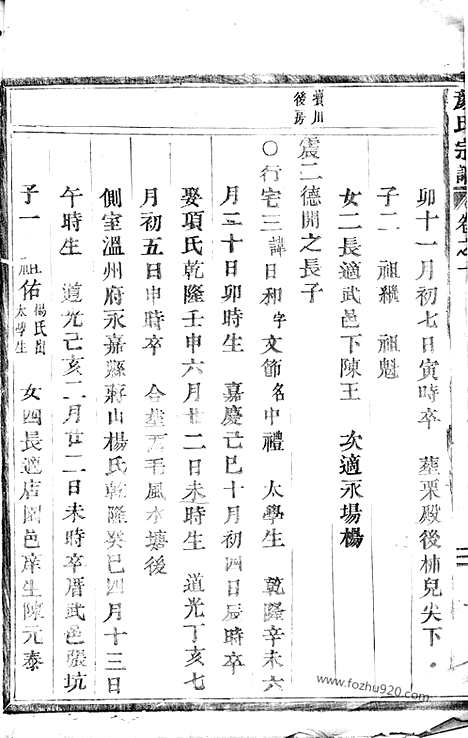 氏宗譜 卷之十
卯十一月初七日寅時卒 葬栗殿後柿兒尖下
子二 祖繼 祖魁
女二長適武邑下陳王 次適永場楊
後房
震二德開之長子
〇行宅三諱日和字文節名中禮 太學生 乾隆辛未六
月三十日卯時生 嘉慶己巳十月初四日辰時卒
娶項氏乾隆壬申六月廿二日未時生 道光丁亥七
月初五日申時卒 合葬 毛風水壠後
側室溫州府永嘉縣蔣山楊氏乾隆癸巳四月十三日
午時生 道光己亥二月廿二日未時卒厝武邑 坑
子一 祖佑楊氏出太學生 女四長適店園邑庠生陳元泰
www.fozhu920.com